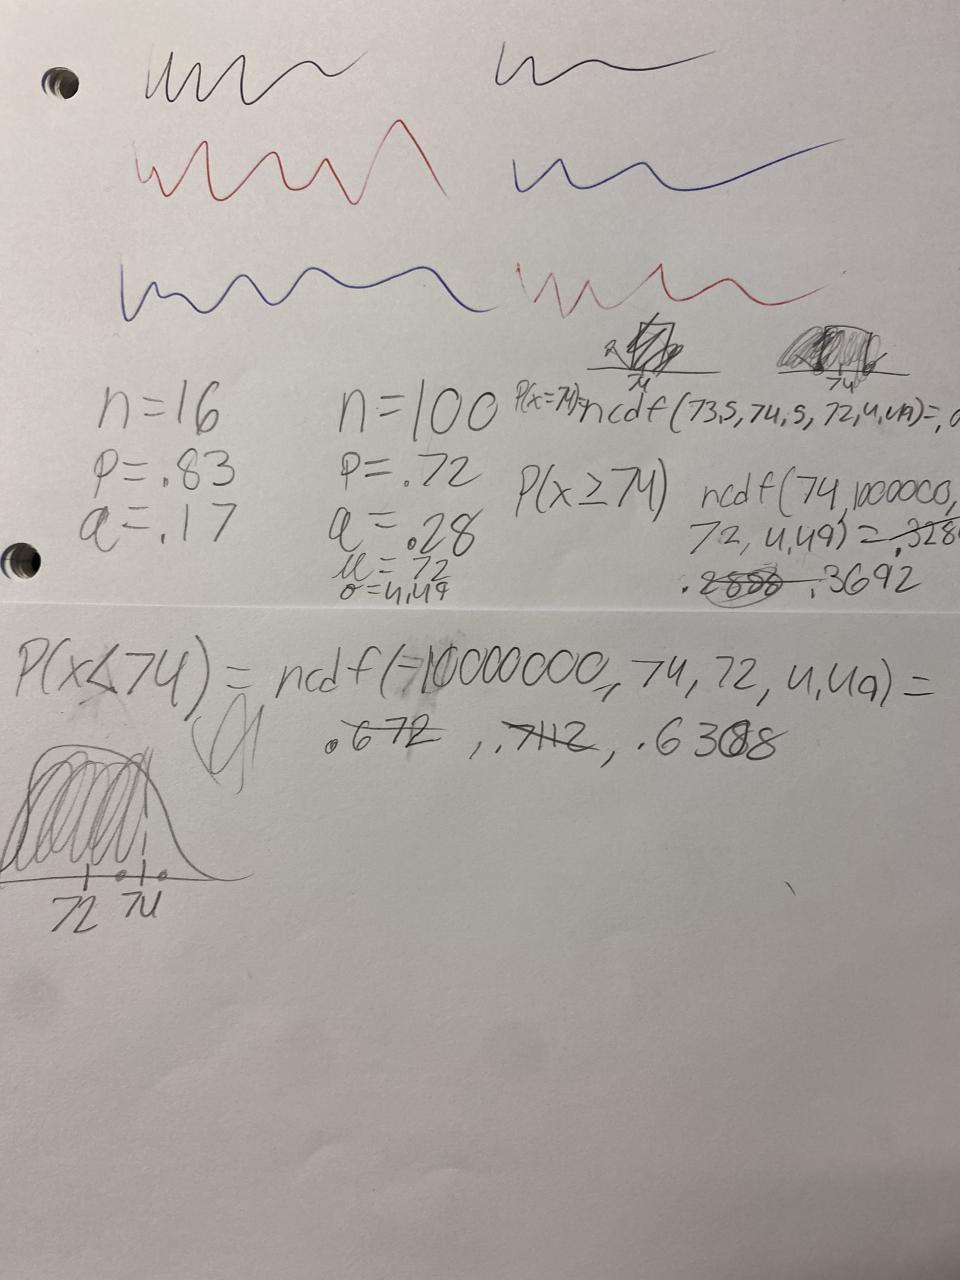 74
74
n=16
p=.83
q=.17
n=100
p=.72
q=.28
μ=72
σ=4.49
P(x=74)=ncdf(73.5,74.5,72,4.49)=.0
P(x≥74) ncdf(74,1000000,
72,4.49)=.328
.2888 .3692
P(x<74)=ncdf(-10000000,74,72,4.49)=
.672,.7112,.6308
72 74